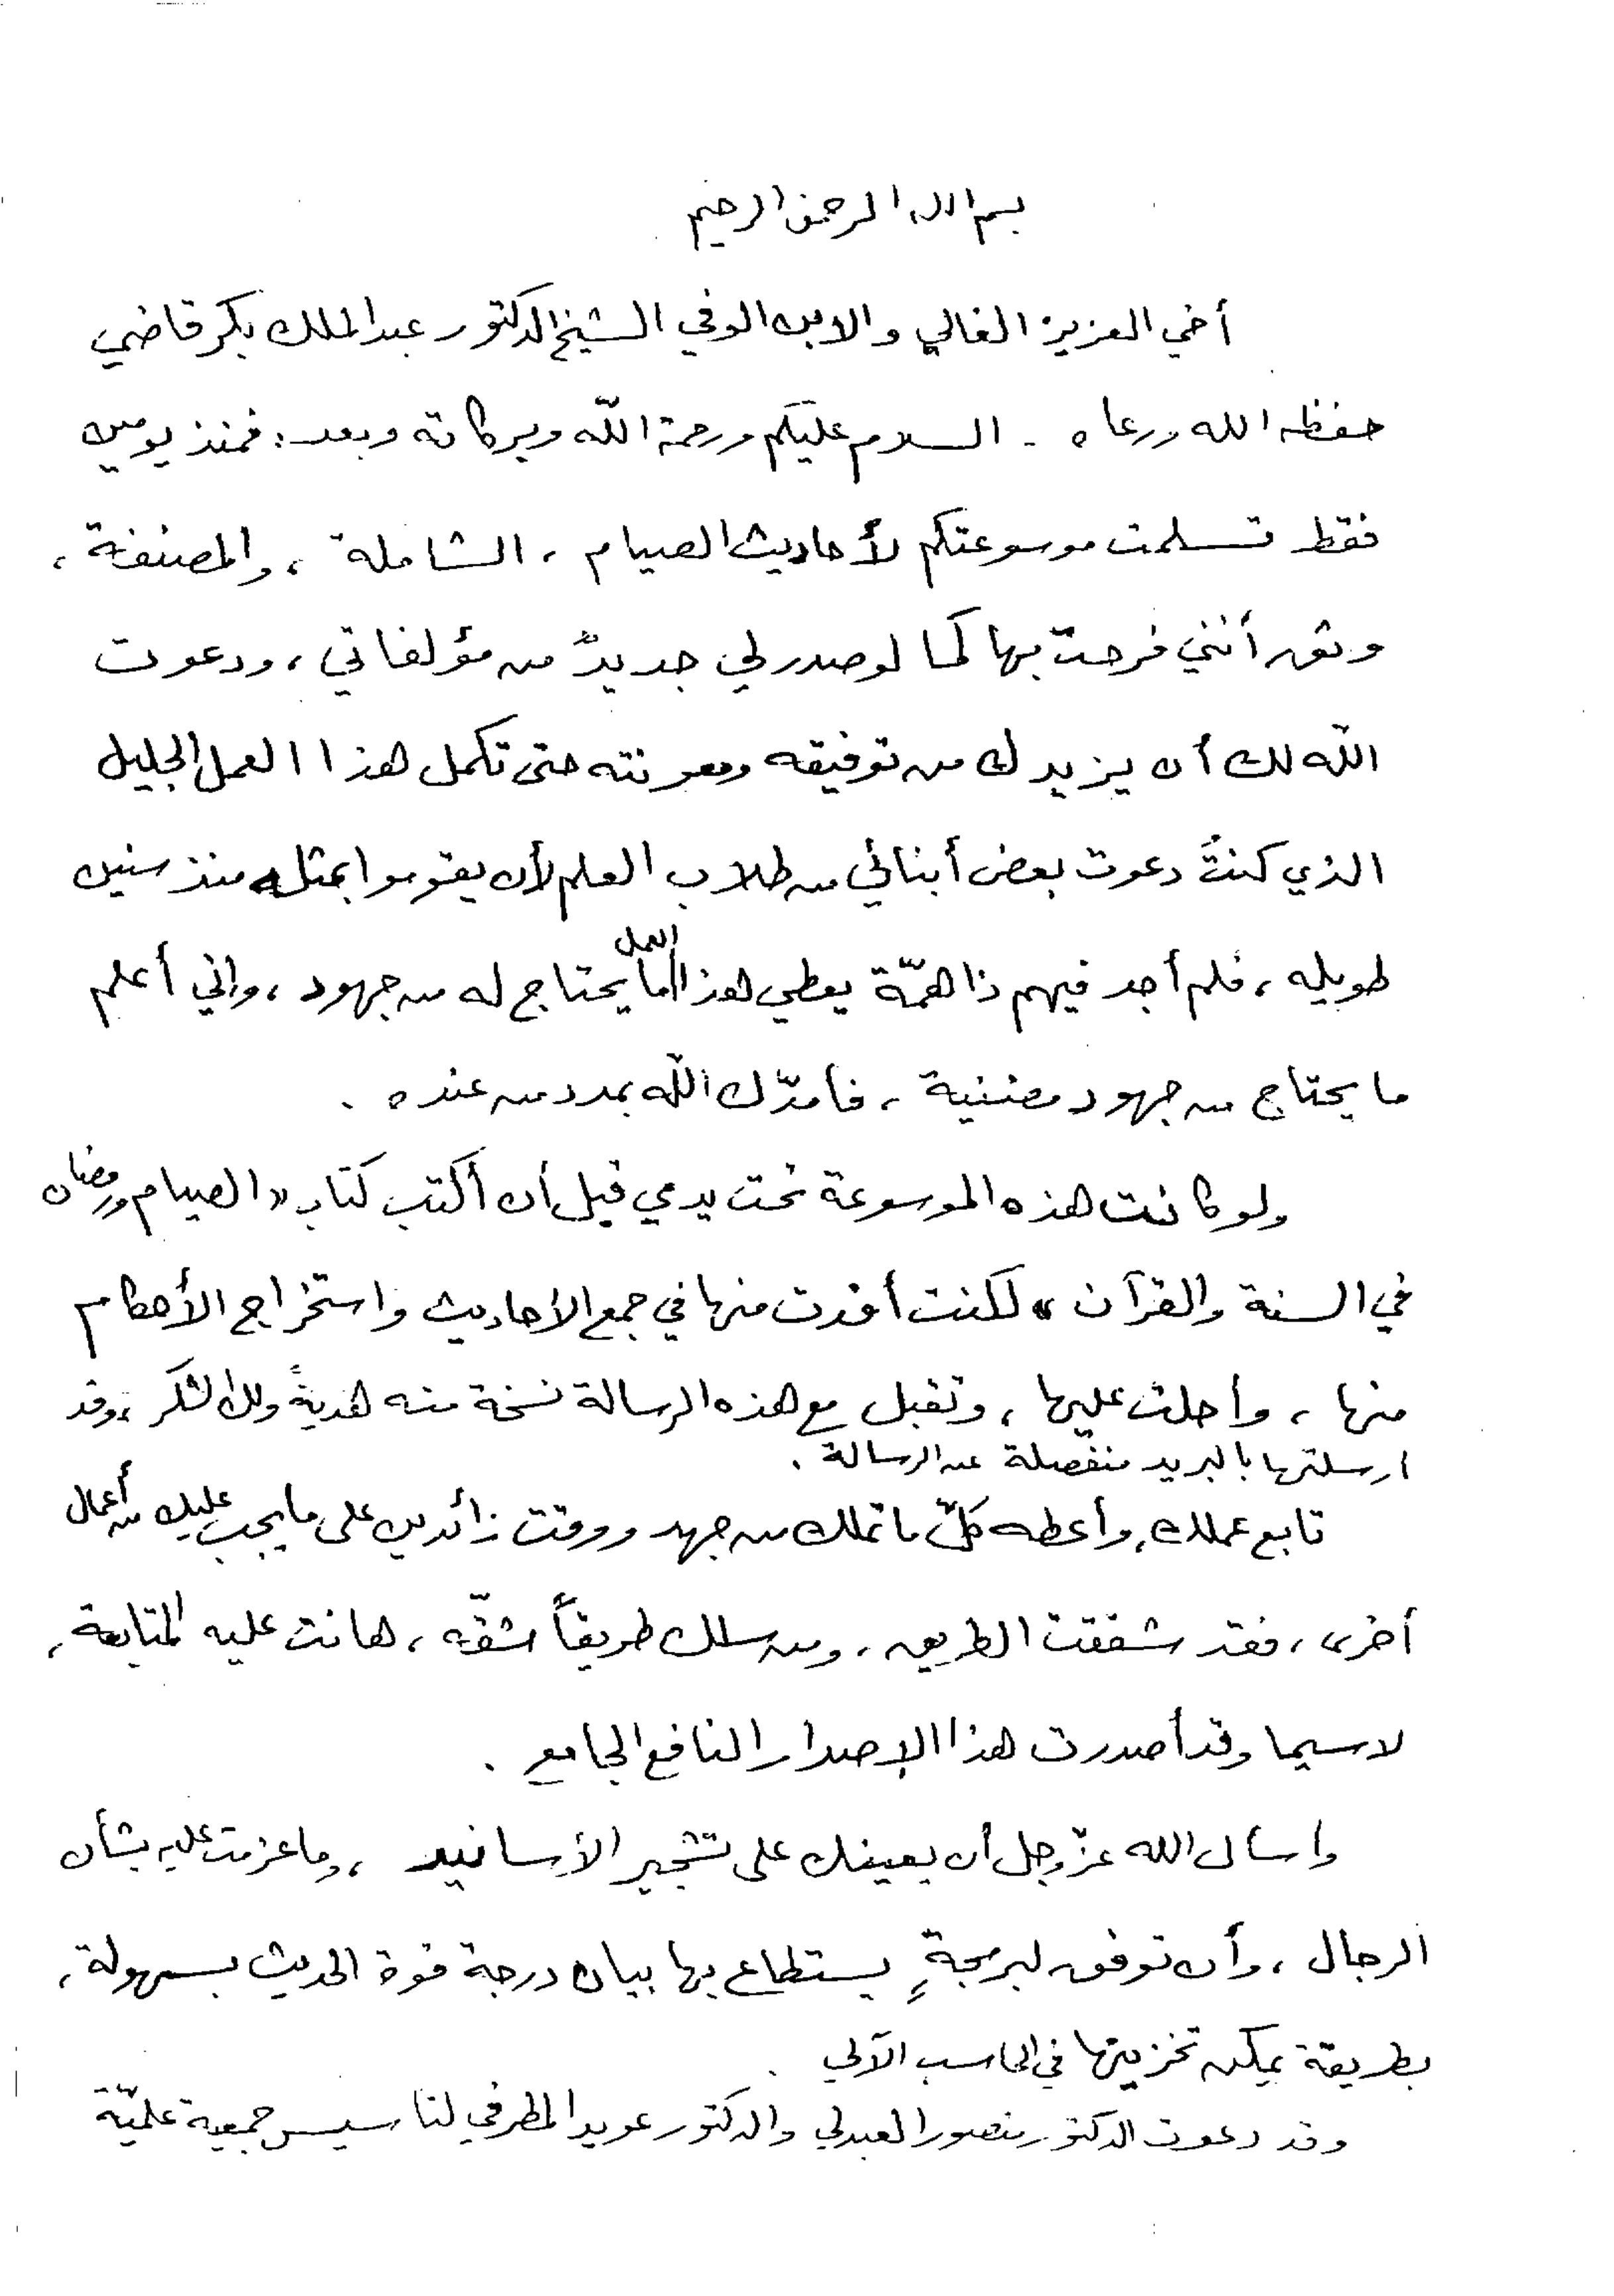 بسم الله الرحمن الرحيم
أخي العزيز الغالي والابن الوفي الشيخ الدكتور عبد الملك بكر قاضي
حفظه الله ورعاه . السلام عليكم ورحمة الله وبركاته وبعد : فمنذ يومين
فقط تسلمت موسوعتكم لأحاديث الصيام ، الشاملة ، والمصنفة ،
وثق أنني فرحت بها كما لو صدر لي جديدٌ من مؤلفاتي ، ودعوت
الله لك أن يزيدك من توفيقه ومعونته حتى تكمل هذا العمل الجليل
الذي كنتُ دعوت بعض أبنائي من طلاب العلم لأن يقوموا بمثله منذ سنين
طويله ، فلم أجد فيهم ذا همّة يعطي هذا العمل ما يحتاج له من جهود ، واني أعلم
ما يحتاج من جهود مضنية ، فأمدّك الله بمدد من عنده .
ولو كانت هذه الموسوعة تحت يدي قبل أن أكتب كتاب « الصيام ورمضان
في السنة والقرآن » لكنت أفدت منها في جمع الأحاديث واستخراج الأحكام
منها ، وأحلت عليها ، وتقبل مع هذه الرسالة نسخة منه هديةً ولك الشكر ، وقد
ارسلتها بالبريد منفصلة عن الرسالة .
تابع عملك ، وأعطه كلّ ما تملك من جهد ووقت زائدين على ما يجب عليك من أعمال
أخرى ، فقد شققت الطريق ، ومن سلك طريقاً شقّه ، هانت عليه المتابعة ،
لاسيما وقد أصدرت هذا الإصدار النافع الجامع .
وأسأل الله عزّ وجل أن يعينك على تشجير الأسانيد ، وما عزمت عليه بشأن
الرجال ، وأن توفق لبرمجةٍ يستطاع بها بيان درجة قوة الحديث بسهولة ،
بطريقة يمكن تخزينها في الحاسب الآلي .
وقد دعوت الدكتور منصور العبدلي والدكتور عويد المطرفي لتأسيس جمعية علميّة